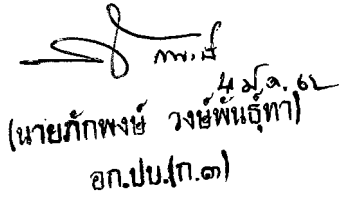 ภักพงษ์
๔ มี.ค. ๖๒
(นายภักพงษ์ วงษ์พันธุ์ทา)
อก.ปบ.(ก.๓)